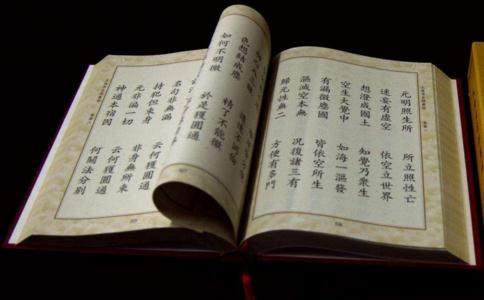 元明照生所 所立照性亡
迷妄有虛空 依空立世界
想澄成國土 知覺乃眾生
空生大覺中 如海一漚發
有漏微塵國 皆依空所生
漚滅空本無 況復諸三有
歸元性無二 方便有多門
色想結成塵 精了不能徹
如何不明徹 於是獲圓通
名句非無漏 云何獲圓通
持犯但束身 非身無所束
元非遍一切 云何獲圓通
神通本宿因 何關法分別